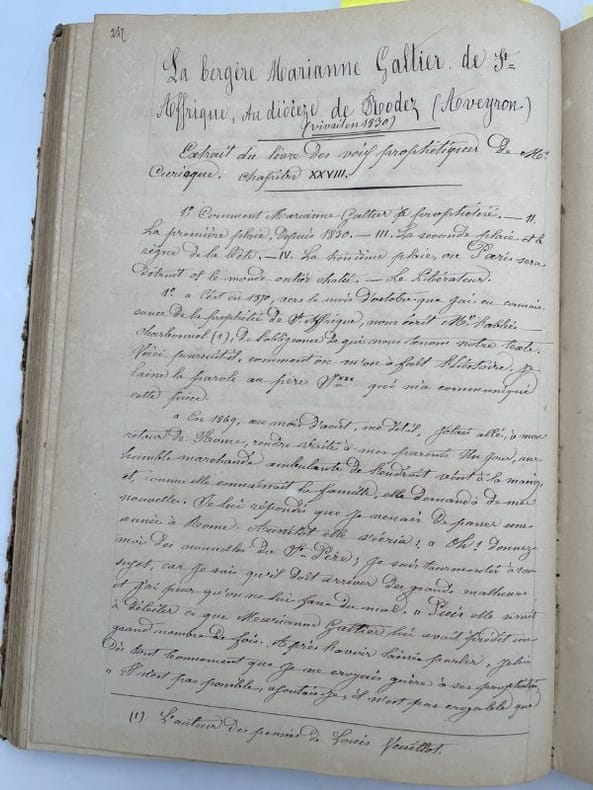 247
La bergère Marianne Galtier de St=
Affrique, au diocèze de Rodez (Aveyron.)
(vivait en 1830)
Extrait du livre des voix prophétiques de Mr
Curicque. chapitre XXVIII.
1º Comment Marianne Galtier a prophétisé. — II.
La première plaie, depuis 1830. — III. La seconde plaie et le
règne de la bête. — IV. La troisième plaie, ou Paris sera
détruit et le monde entier châtié. — Le Libérateur.
1º « C'est en 1870, vers le mois d'octobre que j'ai eu connais-
sance de la prophétie de St Affrique, nous écrit Mr l'abbé
Charbonnel (1), de Soblignane de qui nous tenons notre texte.
Voici, poursuit-il, comment on m'en a fait l'histoire, Je
laisse la parole au père Vxxx qui m'a communiqué
cette pièce.
« En 1869, au mois d'août, me dit-il, j'étais allé, à mon
retour de Rome, rendre visite à mes parents. Un jour, une
humble marchande ambulante de l'endroit vint à la maison,
et, comme elle connaissait la famille, elle demanda de mes
nouvelles. Je lui répondis que je venais de passer une
année à Rome. Aussitot elle s'écria : « Oh ! donnez-
moi des nouvelles du St Père ; je suis tourmentée à son
sujet, car je sais qu'il doit arriver de grands malheurs
et j'ai peur qu'on ne lui fasse du mal. » Puis elle se mit
à débiter ce que Marianne Galtier lui avait prédit un
grand nombre de fois. Après l'avoir laissée parler, je lui
dis tout bonnement que je ne croyais guère à ses prophéties
" Il n'est pas possible, ajoutai-je, il n'est pas croyable que
(1) L'auteur des pensées de Louis Veuillot.